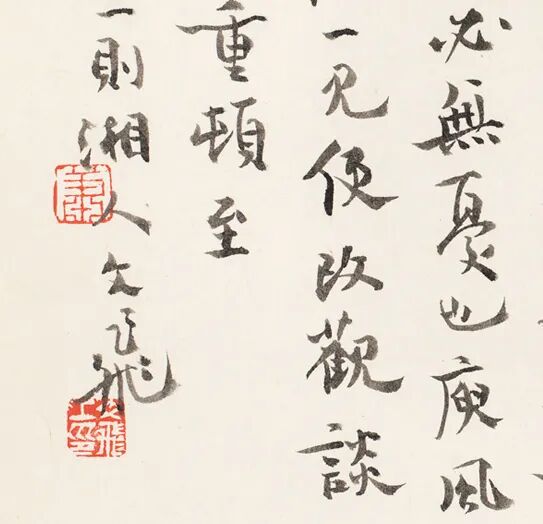 必無憂也庾風
一見便改觀談
重頓至
一則湘人文飛